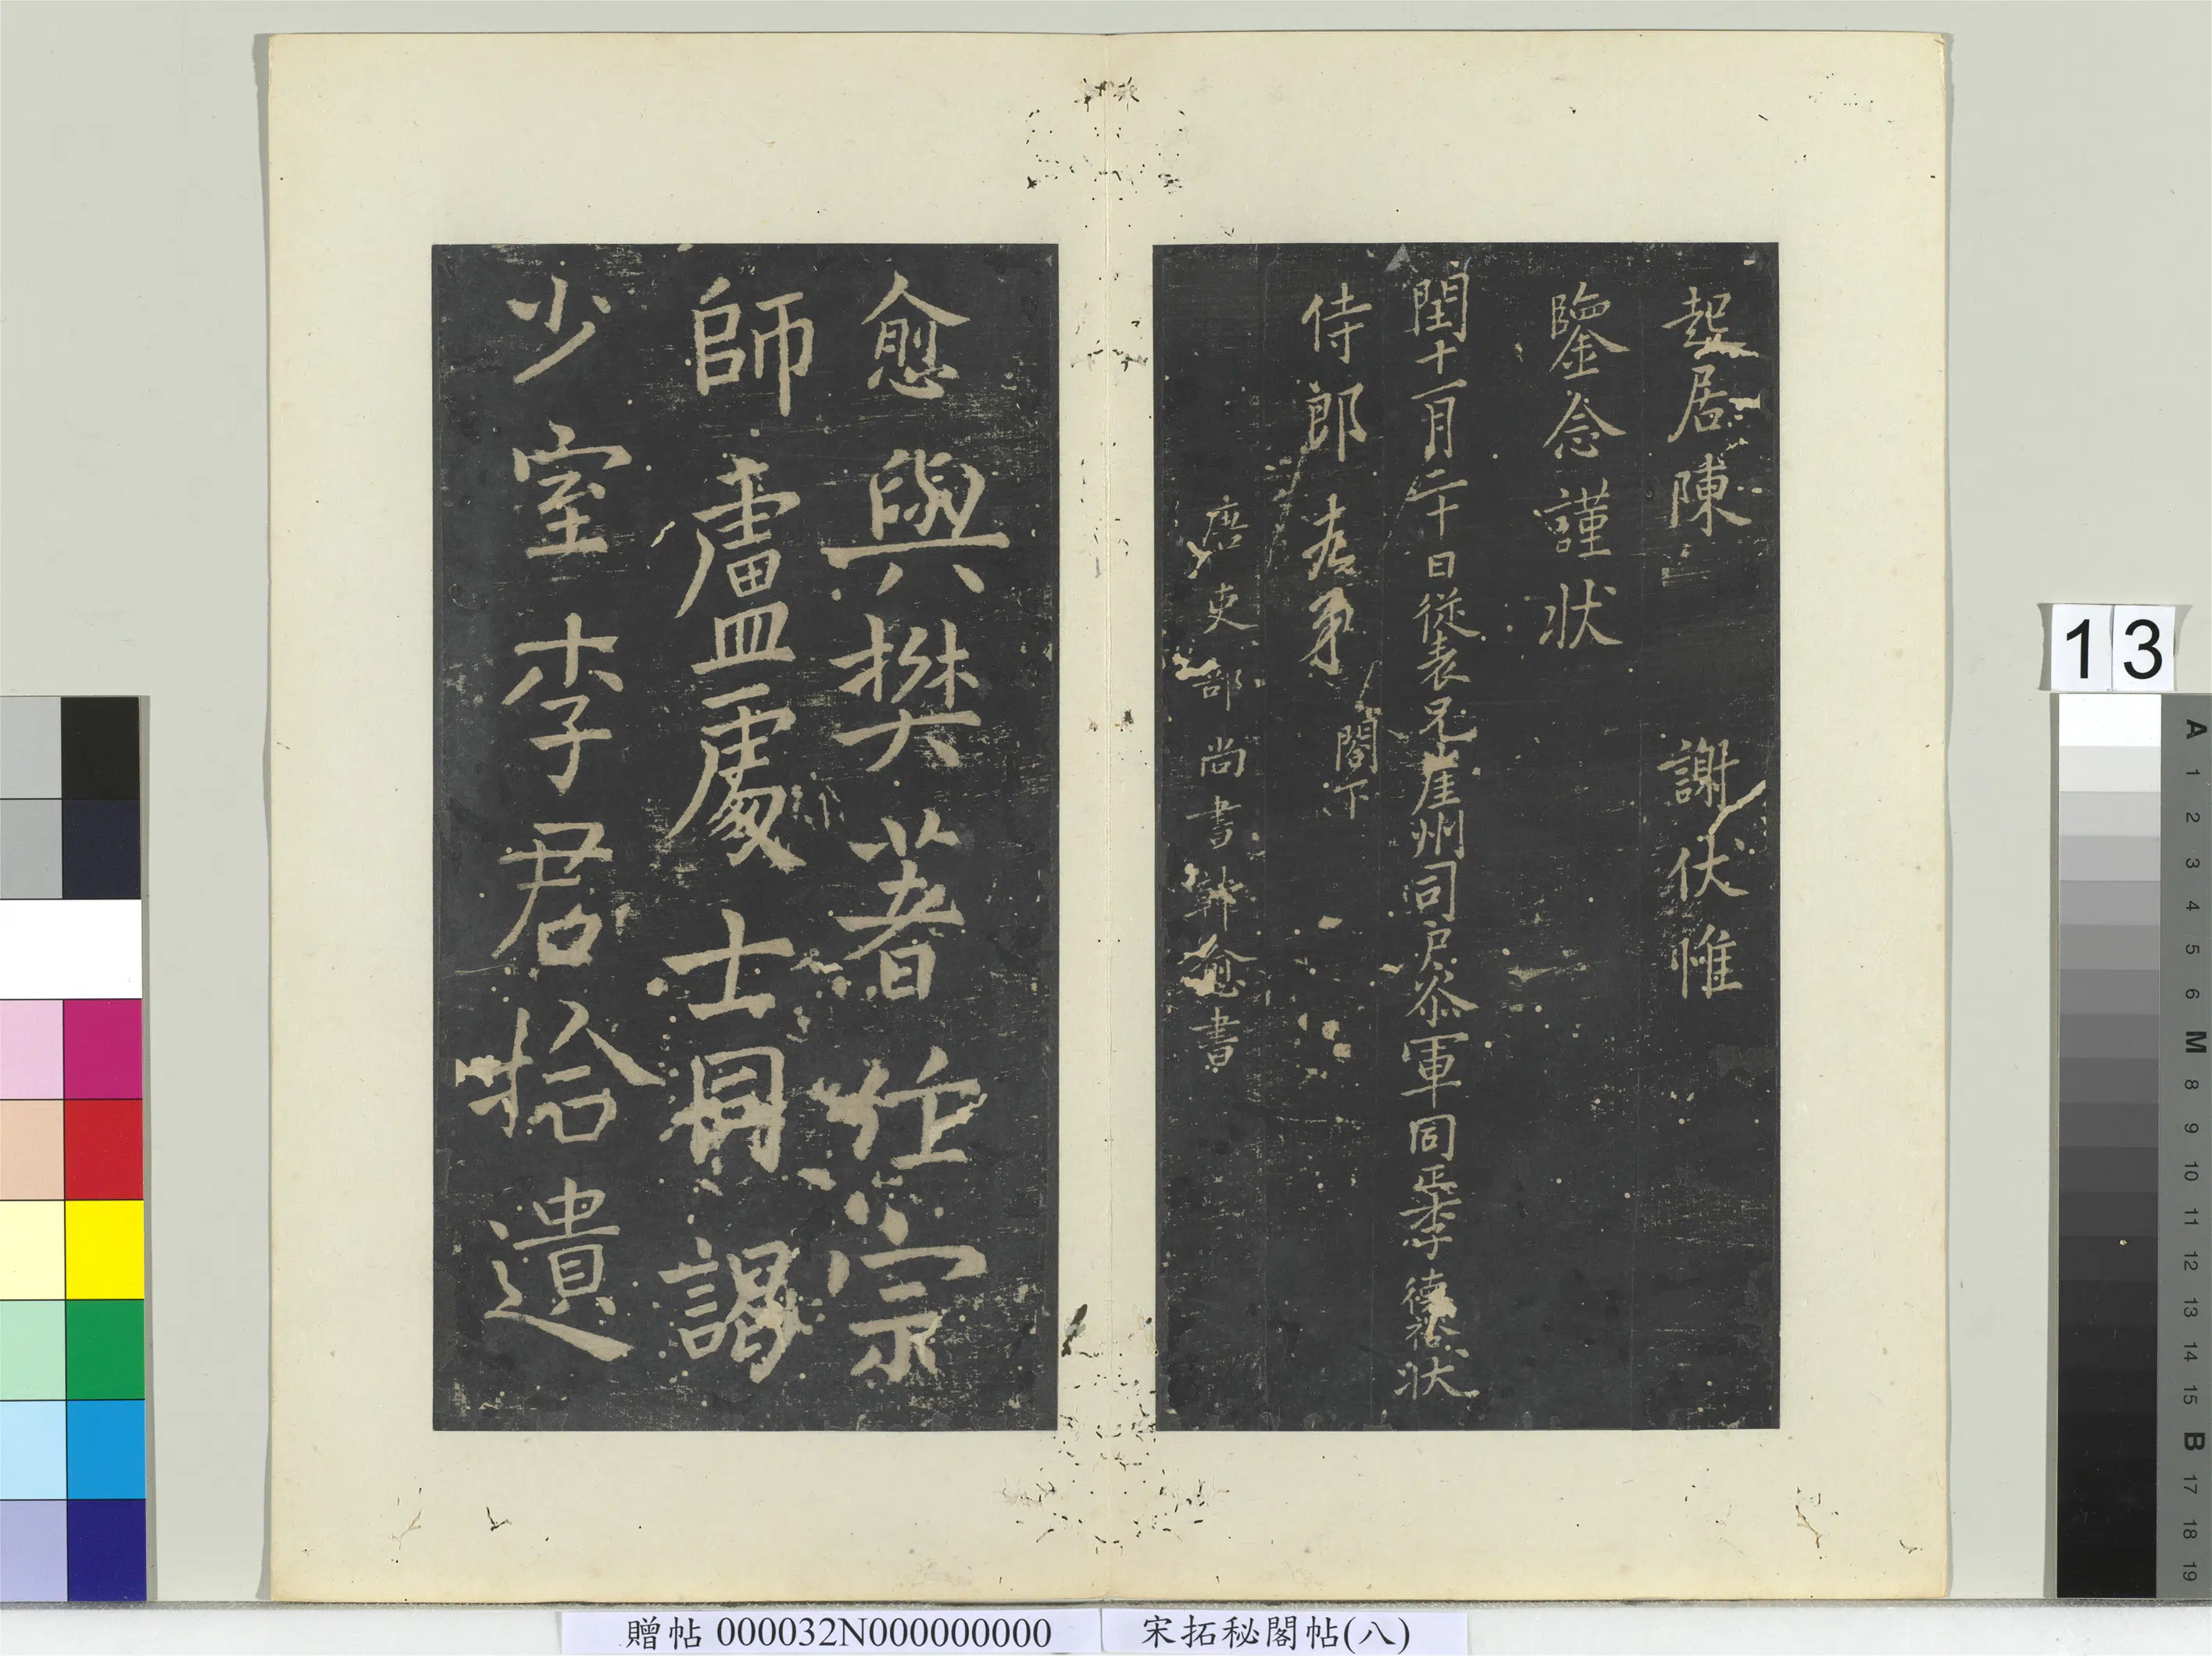 起居陳 謝伏惟
鑒念謹狀
閏十一月二十日從表兄崖州司戶叅軍同正李德裕狀
侍郎 閤下
唐吏部尚書韓愈書
愈與樊著作宗
師盧處士同謁
少室李君拾遺
13
A 1 2 3 4 5 6 M 8 9 10 11 12 13 14 15 B 17 18 19
贈帖 000032N000000000
宋拓秘閣帖(八)